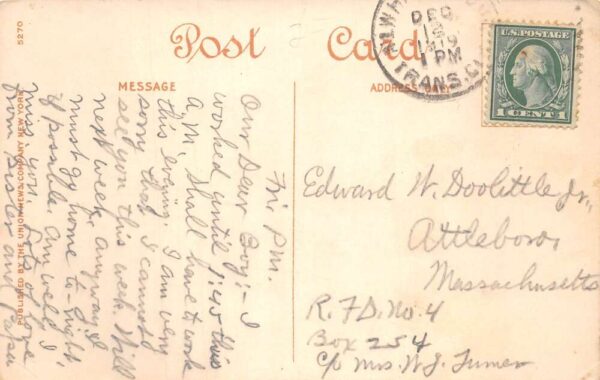 5270
Post Card
MESSAGE
ADDRESS ONLY
DEC
1919
1 PM
TRANS. C
U.S. POSTAGE
1 CENT 1
PUBLISHED BY THE UNION NEWS COMPANY NEW YORK
Fri P.M.
Our Dear Boy:- I
worked until 1:45 this
A.M. Shall have to work
this evening. I am very
sorry that I cannot
see you this week. Will
next week, anyway. I
must go home to-night
if possible. Am well. I
miss you. Lots of love
from Sister and
Edward W. Doolittle Jr.,
Attleboro,
Massachusetts
R.F.D. No. 4
Box 254
c/o Mrs. W. J. Turner